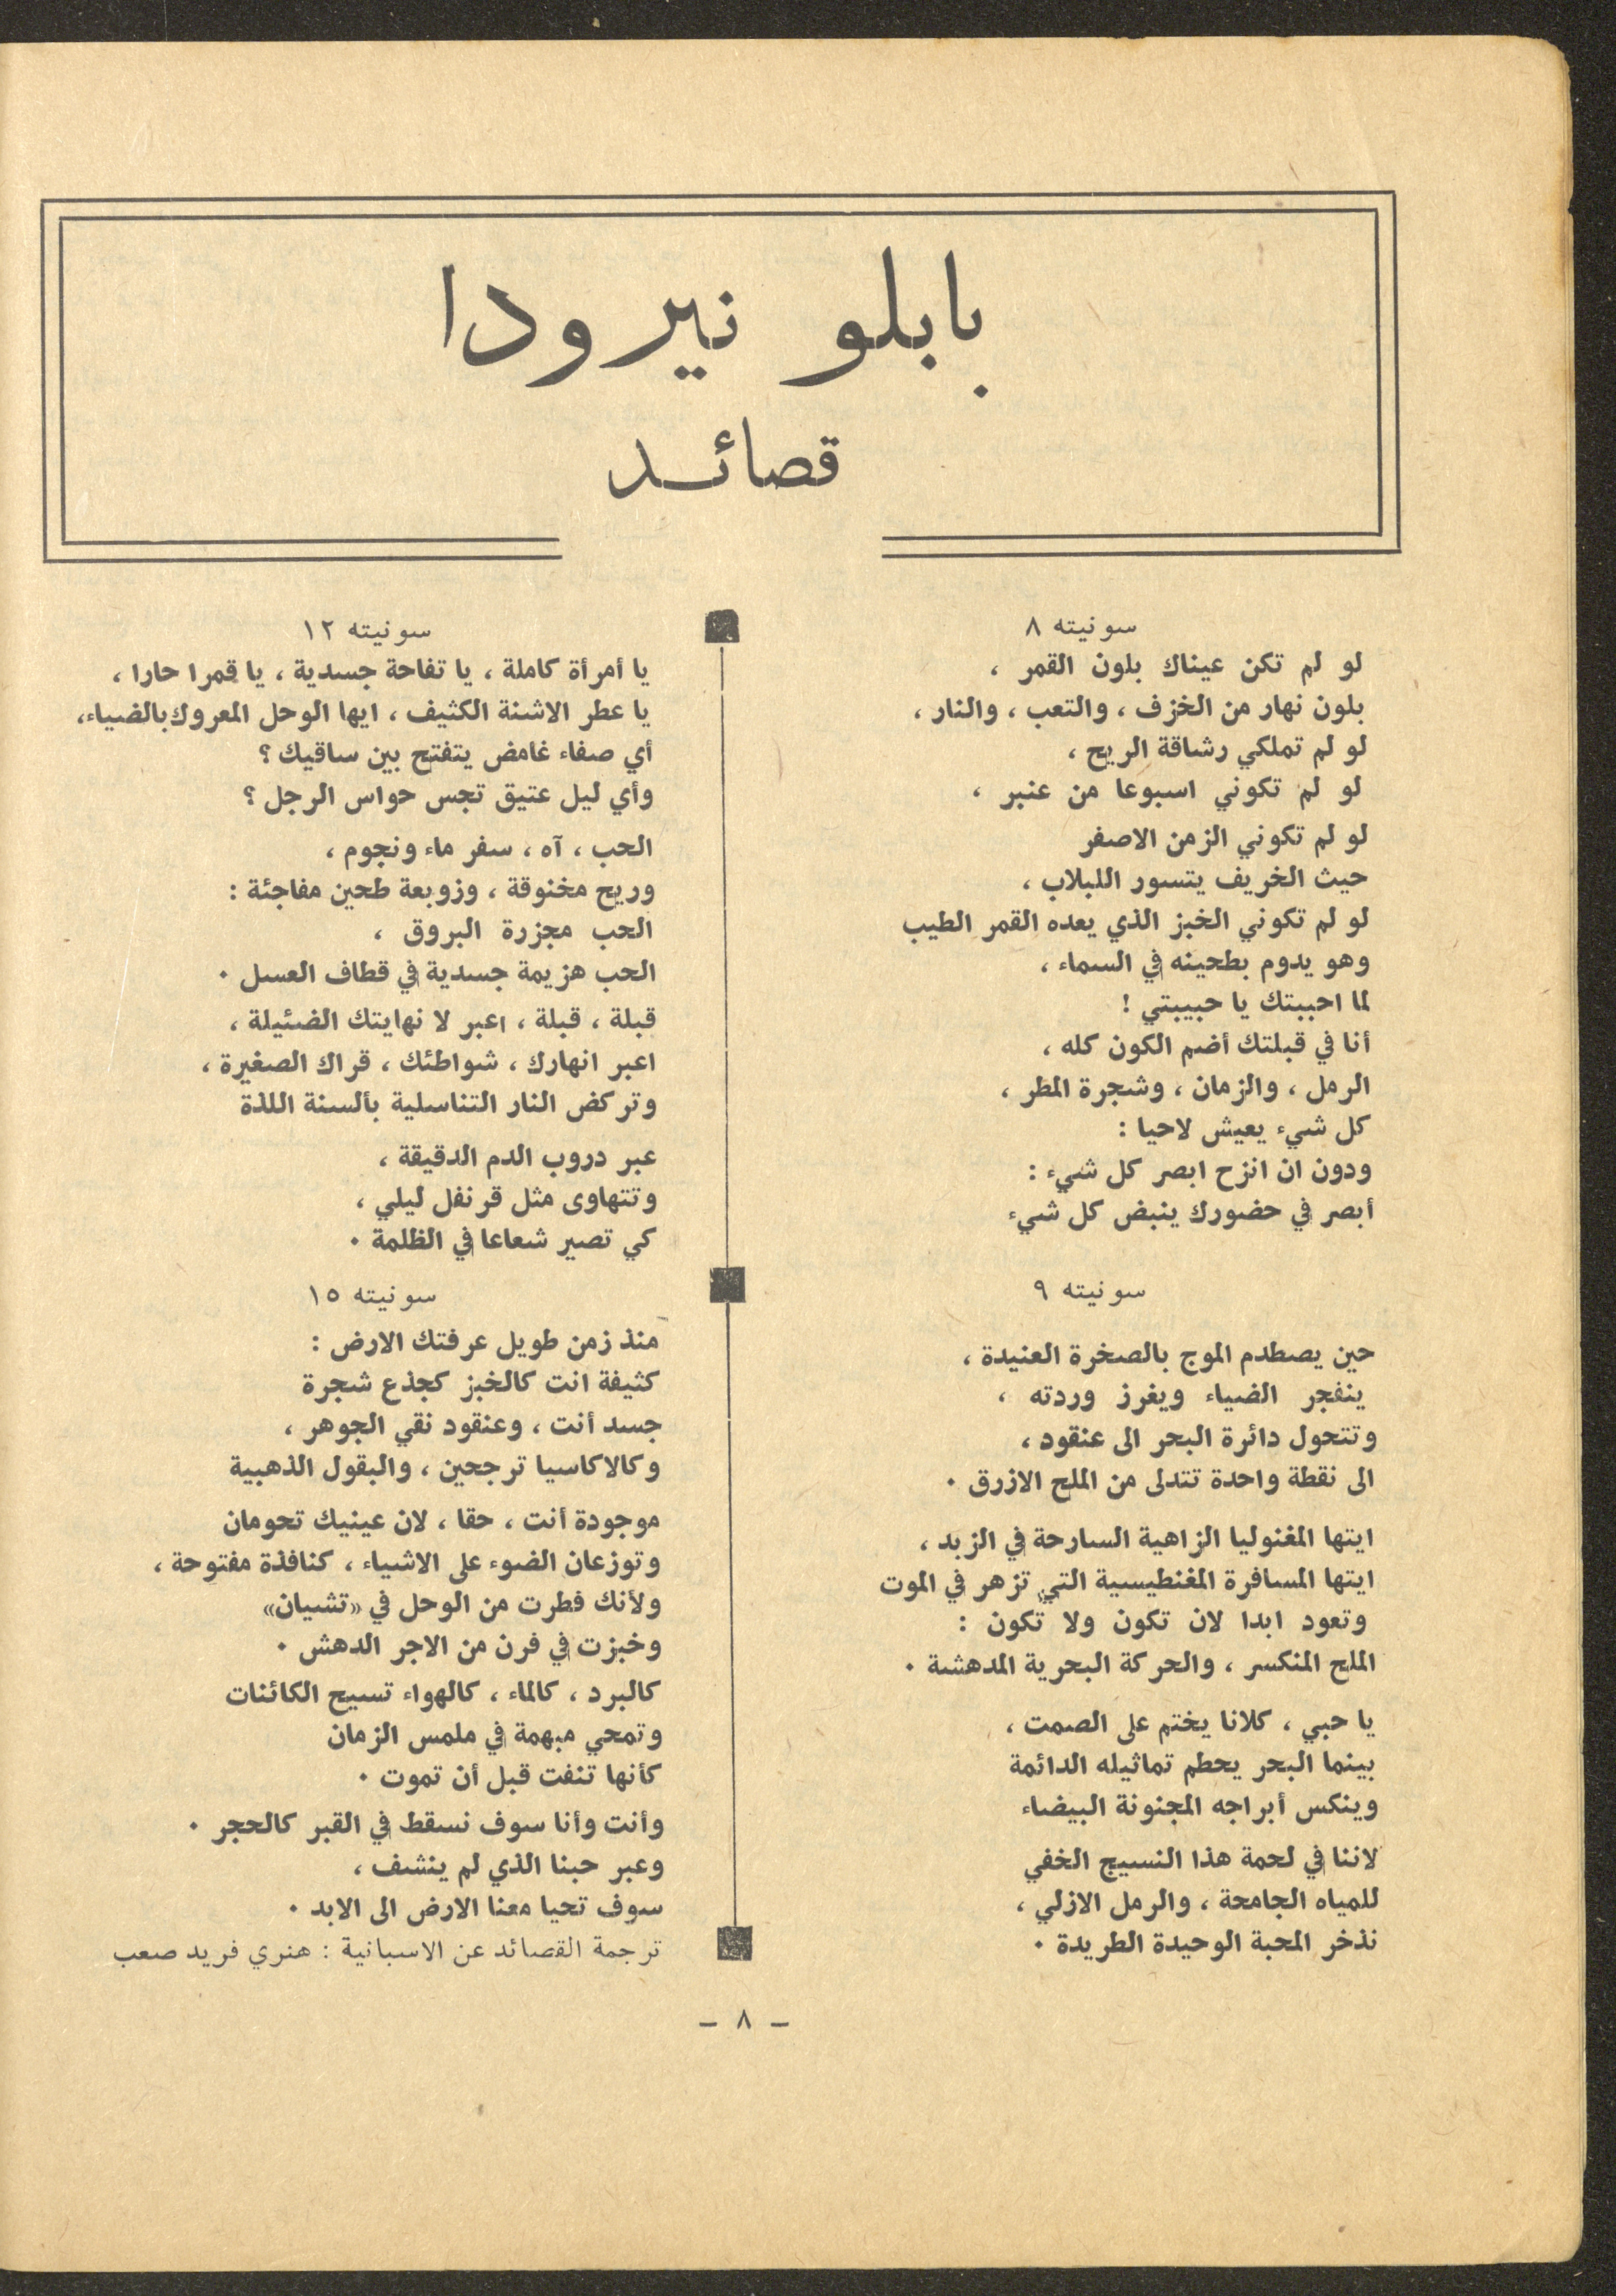 بابلو نيرودا
قصائد
سونيته ٨
لو لم تكن عيناك بلون القمر ،
بلون نهار من الخزف ، والتعب ، والنار ،
لو لم تملكي رشاقة الريح ،
لو لم تكوني اسبوعا من عنبر ،
لو لم تكوني الزمن الاصفر
حيث الخريف يتسور اللبلاب ،
لو لم تكوني الخبز الذي يعده القمر الطيب
وهو يدوم بطحينه في السماء ،
لما احببتك يا حبيبتي !
أنا في قبلتك أضم الكون كله ،
الرمل ، والزمان ، وشجرة المطر ،
كل شيء يعيش لاحيا :
ودون ان انزح ابصر كل شيء :
أبصر في حضورك ينبض كل شيء
سونيته ٩
حين يصطدم الموج بالصخرة العنيدة ،
ينفجر الضياء ويغرز وردته ،
وتتحول دائرة البحر الى عنقود ،
الى نقطة واحدة تتدلى من الملح الازرق ٠
ايتها المغنوليا الزاهية السارحة في الزبد ،
ايتها المسافرة المغنطيسية التي تزهر في الموت
وتعود ابدا لان تكون ولا تكون :
الملح المنكسر ، والحركة البحرية المدهشة ٠
يا حبي ، كلانا يختم على الصمت ،
بينما البحر يحطم تماثيله الدائمة
وينكس أبراجه المجنونة البيضاء
لاننا في لحمة هذا النسيج الخفي
للمياه الجامحة ، والرمل الازلي ،
نذخر المحبة الوحيدة الطريدة ٠
سونيته ١٢
يا أمرأة كاملة ، يا تفاحة جسدية ، يا قمرا حارا ،
يا عطر الاشنة الكثيف ، ايها الوحل المعروك بالضياء،
أي صفاء غامض يتفتح بين ساقيك ؟
وأي ليل عتيق تجس حواس الرجل ؟
الحب ، آه ، سفر ماء ونجوم ،
وريح مخنوقة ، وزوبعة طحين مفاجئة :
الحب مجزرة البروق ،
الحب هزيمة جسدية في قطاف العسل ٠
قبلة ، قبلة ، اعبر لا نهايتك الضئيلة ،
اعبر انهارك ، شواطئك ، قراك الصغيرة ،
وتركض النار التناسلية بألسنة اللذة
عبر دروب الدم الدقيقة ،
وتتهاوى مثل قرنفل ليلي ،
كي تصير شعاعا في الظلمة ٠
سونيته ١٥
منذ زمن طويل عرفتك الارض :
كثيفة انت كالخبز كجذع شجرة
جسد أنت ، وعنقود نقي الجوهر ،
وكالاكاسيا ترجحين ، والبقول الذهبية
موجودة أنت ، حقا ، لان عينيك تحومان
وتوزعان الضوء على الاشياء ، كنافذة مفتوحة ،
ولأنك فطرت من الوحل في «تشيان»
وخبزت في فرن من الاجر الدهش ٠
كالبرد ، كالماء ، كالهواء تسيح الكائنات
وتمحي مبهمة في ملمس الزمان
كأنها تنفت قبل أن تموت ٠
وأنت وأنا سوف نسقط في القبر كالحجر ٠
وعبر حبنا الذي لم ينشف ،
سوف تحيا معنا الارض الى الابد ٠
ترجمة القصائد عن الاسبانية : هنري فريد صعب
- ٨ -